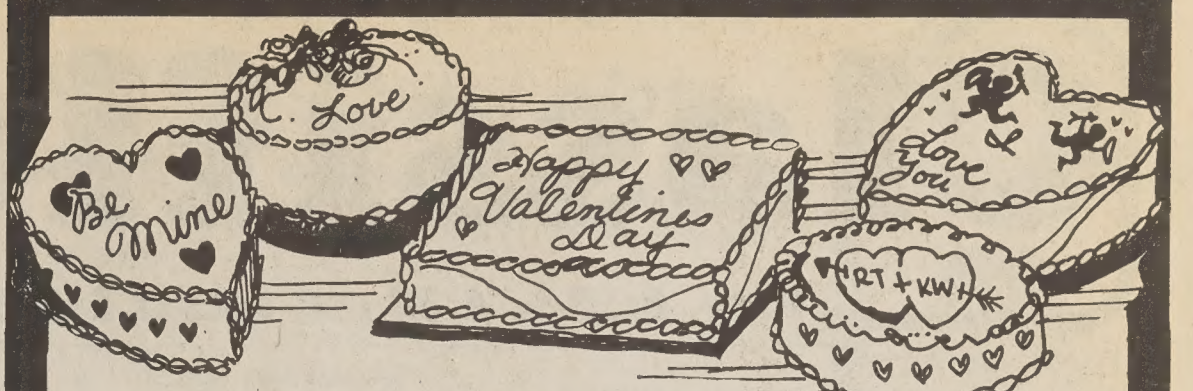 Love
Be
Mine
Happy
Valentines
Day
I
Love
You
RT + KW